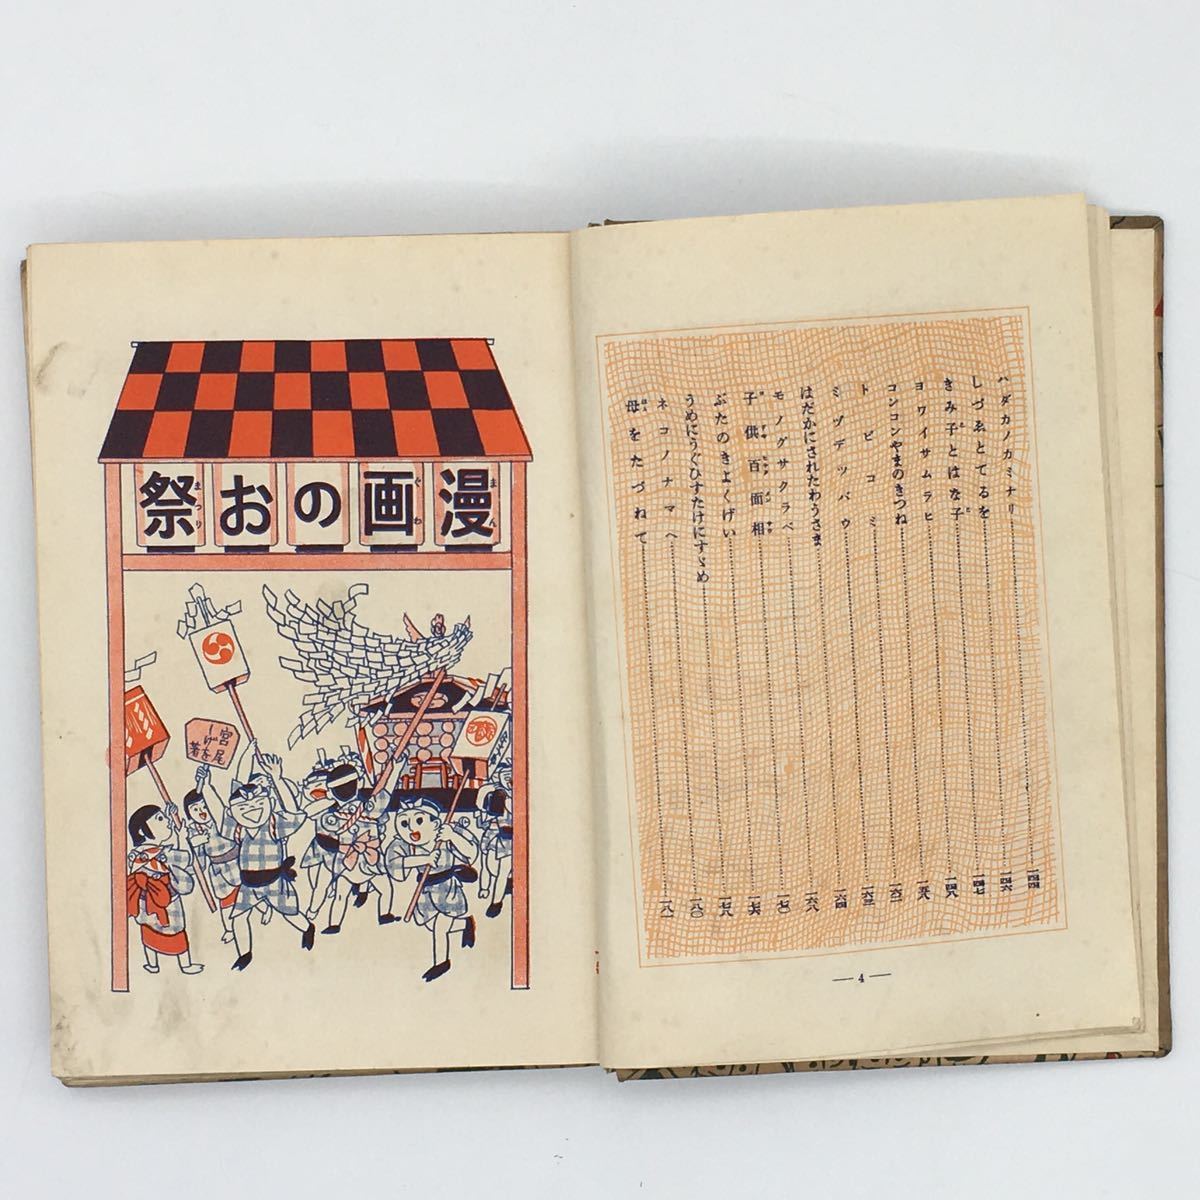 ハダカノカミナリ……一四四
しづゑとてるを……一四六
きみ子とはな子……一四七
ヨワイサムラヒ……一四八
コンコンやまのきつね……一五八
トビコミ
ミヅデツパウ
はだかにされたわうさま……一六四
モノグサクラベ……一六八
子供百面相……一七〇
ぶたのきよくげい……一七六
うめにうぐひすたけにすゞめ……一七八
ネコノナマヘ……一八〇
母をたづねて……一八一
— 4 —
漫画のお祭
まん
ぐわ
まつり
宮尾
しげを
著